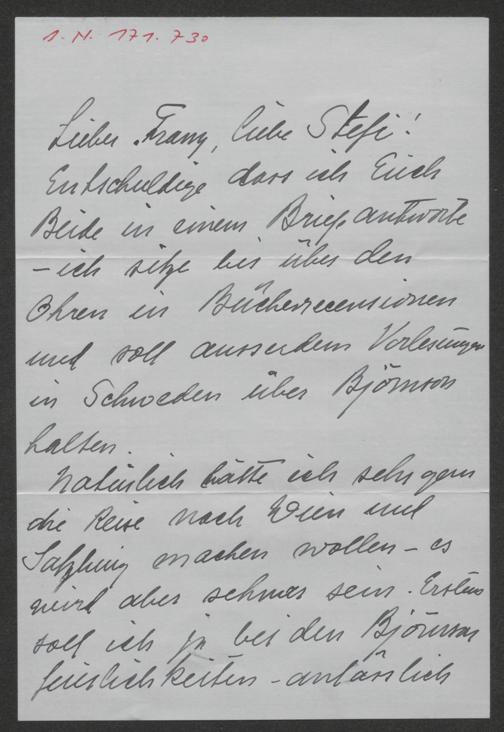 1. N. 171.730
Lieber Franz, liebe Stefi!
Entschuldige dass ich Euch
Beide in einem Brief antworte
– ich sitze bis über den
Ohren in Bücherrecensionen
und soll ausserdem Vorlesungen
in Schweden über Björnson
halten.
Natürlich hätte ich sehr gern
die Reise nach Wien und
Salzburg machen wollen – es
wird aber schwer sein. Erstens
soll ich ja bei den Björnson
feierlichkeiten – anlässlich